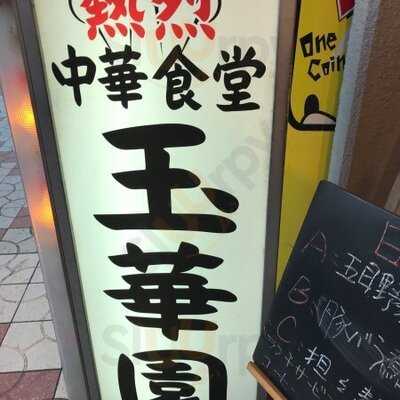 熱烈
中華食堂
玉華園
One
Coin
A:五目野
B:豚バラ
C:担々
ランチサービス